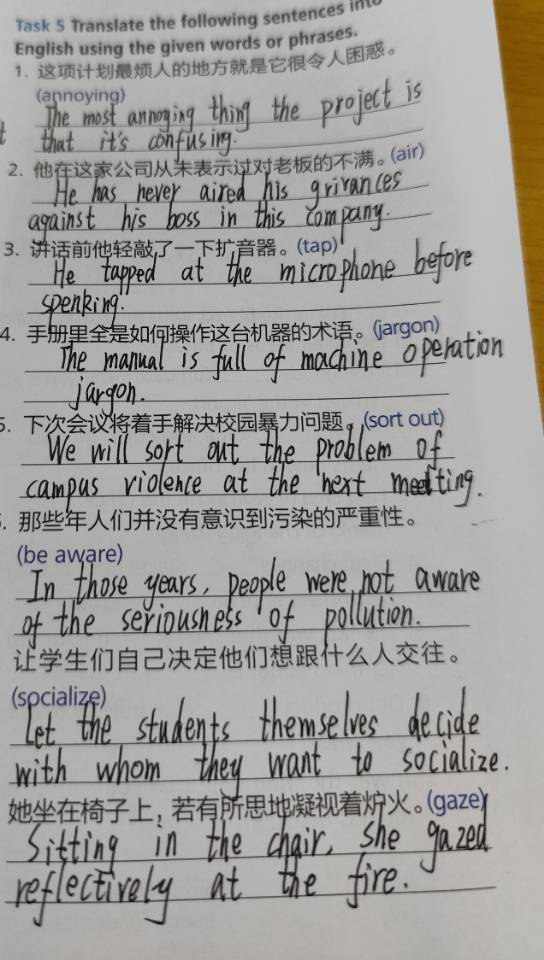 Task 5 Translate the following sentences into
English using the given words or phrases.
1. 这项计划最烦人的地方就是它很令人困惑。
(annoying)
The most annoying thing the project is
that it's confusing.
2. 他在这家公司从未表示过对老板的不满。(air)
He has never aired his grivances
against his boss in this company.
3. 讲话前他轻敲了一下扩音器。(tap)
He tapped at the microphone before
spenking.
4. 手册里全是如何操作这台机器的术语。(jargon)
The manual is full of machine operation
jargon.
5. 下次会议将着手解决校园暴力问题。(sort out)
We will sort out the problem of
campus violence at the next meeting.
. 那些年人们并没有意识到污染的严重性。
(be aware)
In those years, people were not aware
of the seriousness of pollution.
让学生们自己决定他们想跟什么人交往。
(socialize)
Let the students themselves decide
with whom they want to socialize.
她坐在椅子上，若有所思地凝视着炉火。(gaze)
Sitting in the chair, she gazed
reflectively at the fire.